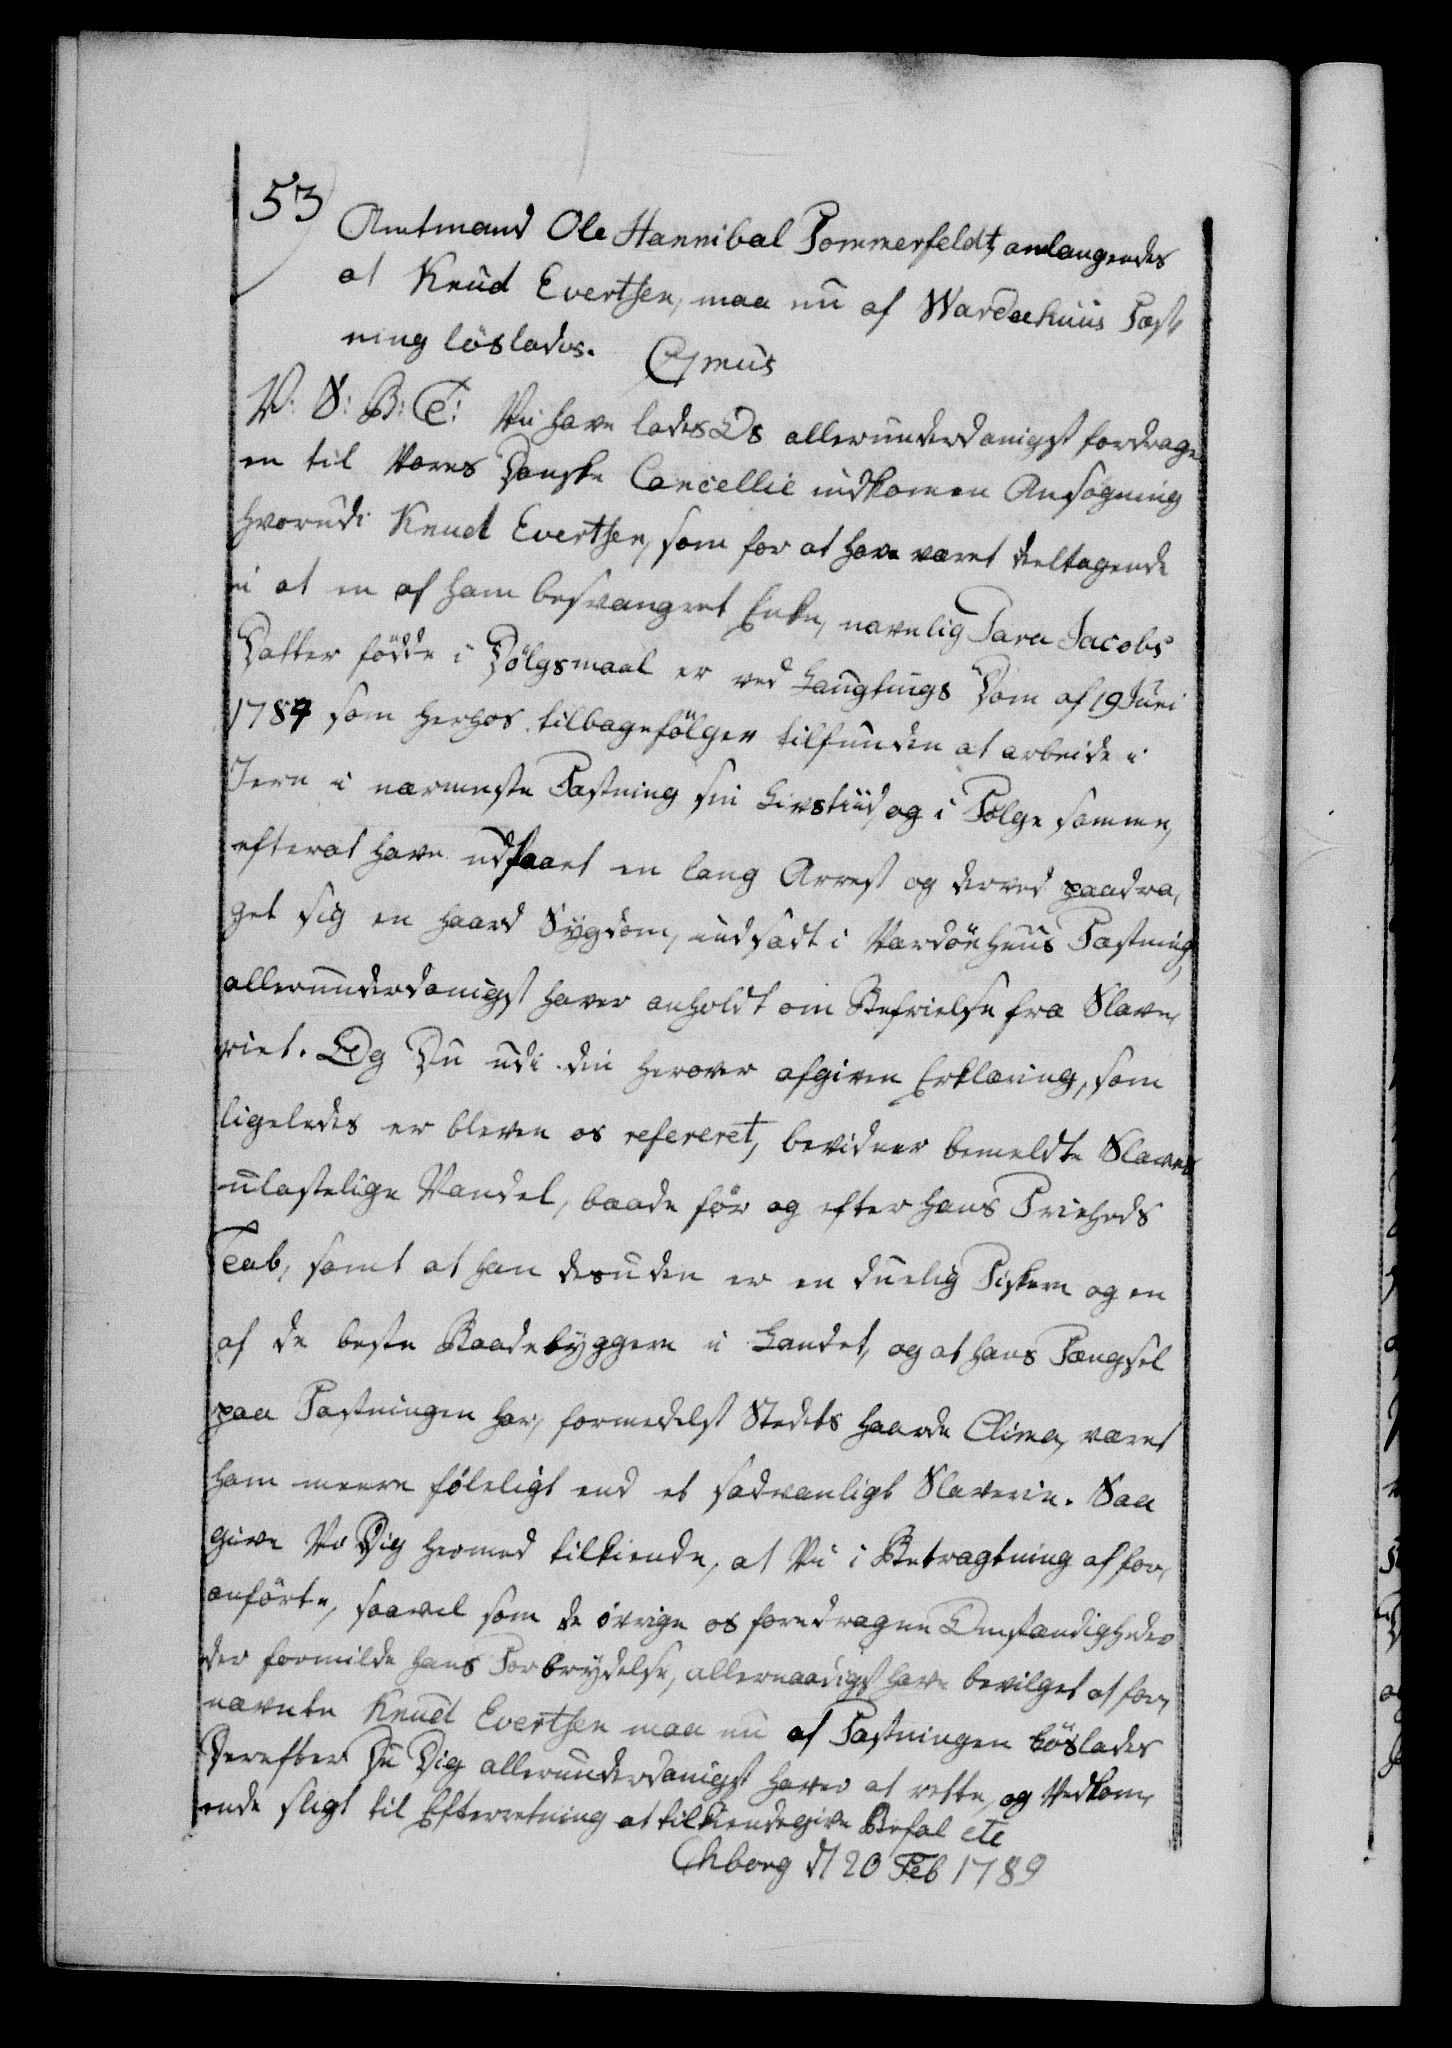 53)
Amtmand Ole Hannibal Sommerfeldt, anlangendes
at Knud Evertsen, maa nu af Wardoehuus Fæst-
ning löslades. C7mus
W: S: B: T: Vi have ladet Os allerunderdanigst fordrage
en til Vores Danske Cancellie indkomen Ansögning
hvorudi Knud Evertsen, som for at have været deeltagende
i at en af ham besvangret Enke, navnlig Sara Jacobs
Datter födde i Dölgsmaal er ved Laugtings Dom af 19 Juni
1787 som herhos tilbagefölger tilfunden at arbeide i
Jern i nærmeste Fæstning sin Livstiid, og i Fölge samme,
efterat have udstaaet en lang Arrest og derved paadra-
get sig en haard Sygdom, indsadt i Vardöehuus Fæstning,
allerunderdanigst haver anholdt om Befrielse fra Slave-
riet. Og Du udi din herover afgivne Erklæring, som
ligeledes er bleven os refereret, bevidner bemeldte Slaves
ulastelige Vandel, baade för og efter hans Friheds
Tab, samt at han desuden er en duelig Fisker og en
af de beste Baadebyggere i Landet, og at hans Fængsel
paa Fæstningen har, formedelst Stedets haarde Clima, været
ham meere föleligt end et sædvanligt Slaverie. Saa
give Vi Dig hermed tilkiende, at Vi i Betragtning af for-
anförte, saavel som de övrige os foredragne Omstændigheder
der formilde hans Forbrydelse, allernaadigst have bevilget at for-
nævnte Knud Evertsen maa nu af Fæstningen löslades
Derefter Du Dig allerunderdanigst haver at rette, og Vedkom-
ende sligt til Efterretning at tilkiendegive Befal etc
Chborg d 20 Feb 1789